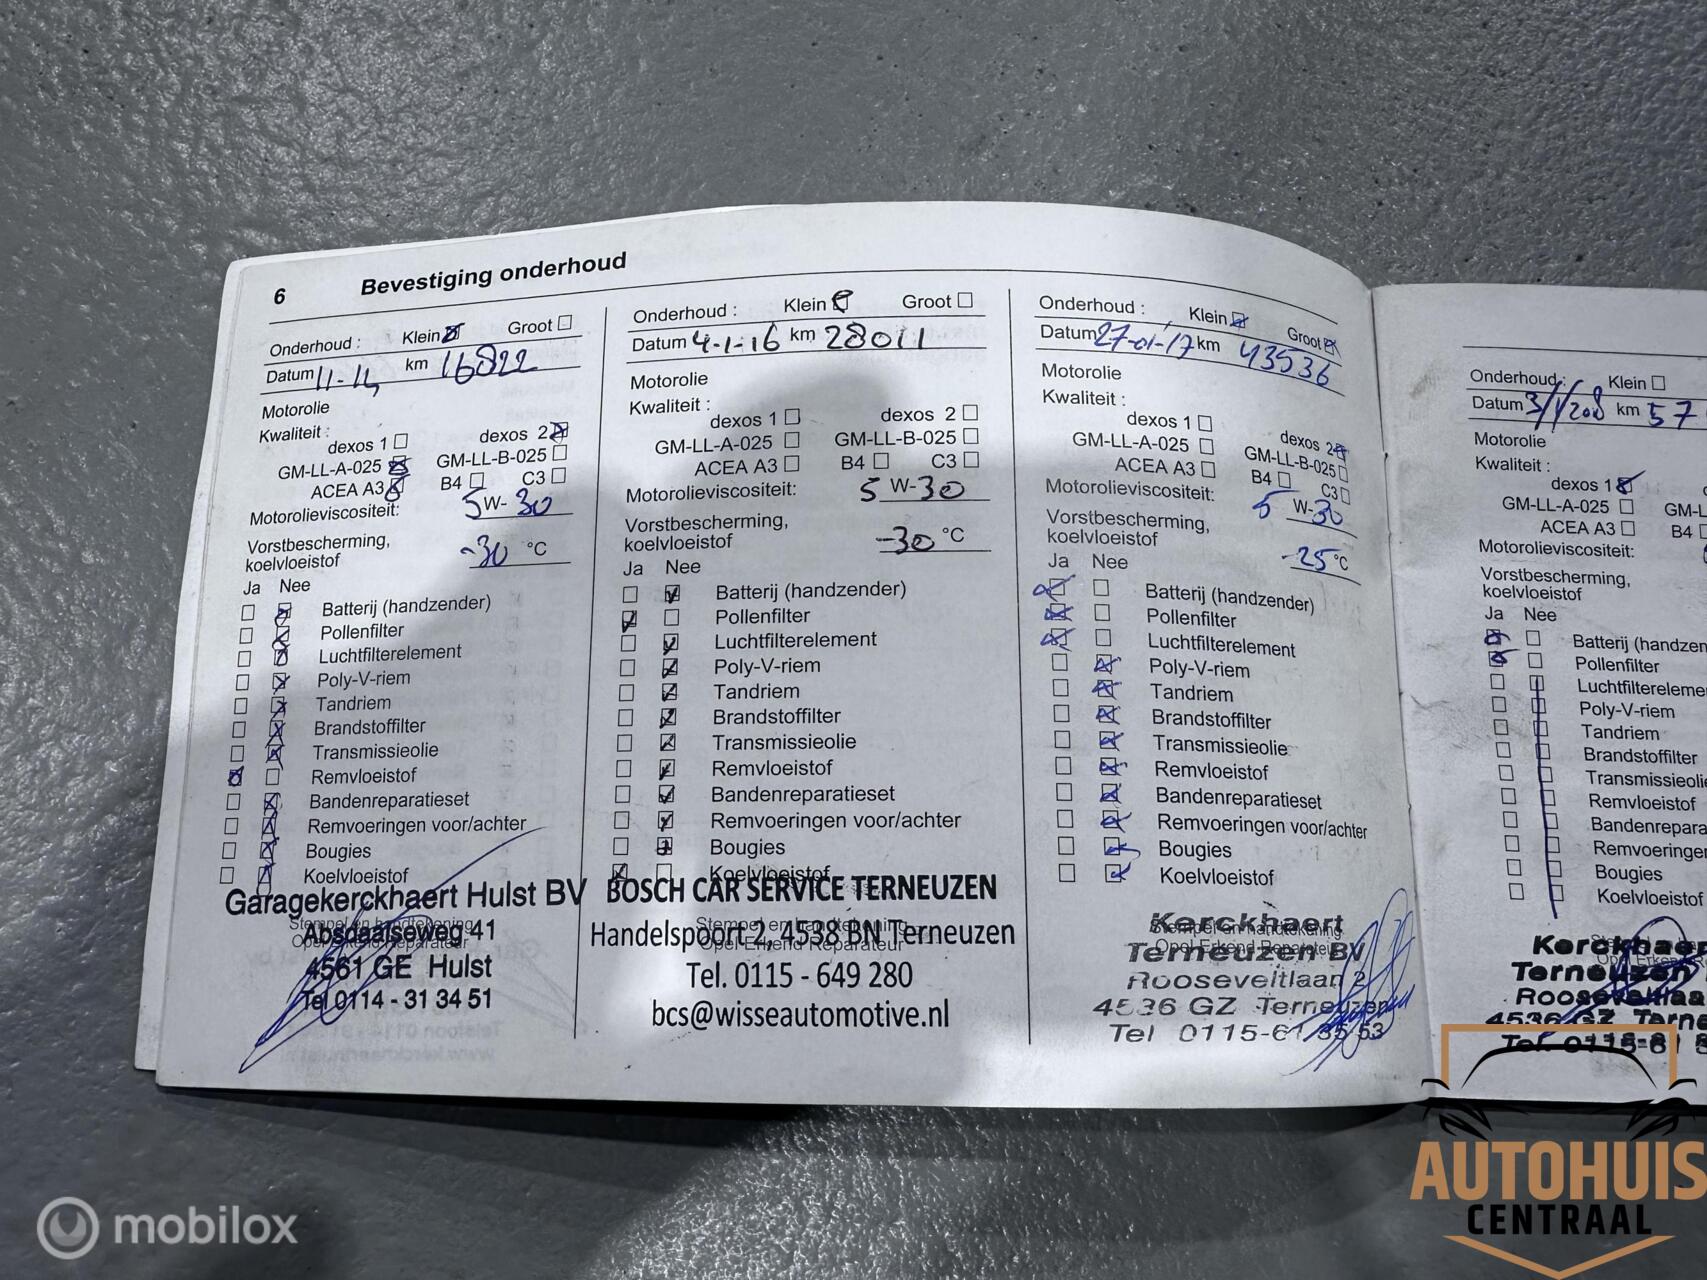 6 Bevestiging onderhoud
Onderhoud : Klein Groot
Datum 11-14 km 16822
Motorolie
Kwaliteit :
dexos 1 dexos 2
GM-LL-A-025 GM-LL-B-025
ACEA A3 B4 C3
Motorolieviscositeit: 5 W- 30
Vorstbescherming,
koelvloeistof -30 °C
Ja Nee
Batterij (handzender)
Pollenfilter
Luchtfilterelement
Poly-V-riem
Tandriem
Brandstoffilter
Transmissieolie
Remvloeistof
Bandenreparatieset
Remvoeringen voor/achter
Bougies
Koelvloeistof
Garagekerckhaert Hulst BV
Stempel en handtekening
Absdaalseweg 41
Opel Erkend Reparateur
4561 GE Hulst
Tel 0114 - 31 34 51
Onderhoud : Klein Groot
Datum 4-1-16 km 28011
Motorolie
Kwaliteit :
dexos 1 dexos 2
GM-LL-A-025 GM-LL-B-025
ACEA A3 B4 C3
Motorolieviscositeit: 5 W-30
Vorstbescherming,
koelvloeistof -30 °C
Ja Nee
Batterij (handzender)
Pollenfilter
Luchtfilterelement
Poly-V-riem
Tandriem
Brandstoffilter
Transmissieolie
Remvloeistof
Bandenreparatieset
Remvoeringen voor/achter
Bougies
Koelvloeistof
BOSCH CAR SERVICE TERNEUZEN
Stempel en handtekening
Handelspoort 2, 4538 BN Terneuzen
Opel Erkend Reparateur
Tel. 0115 - 649 280
bcs@wisseautomotive.nl
Onderhoud : Klein Groot
Datum 27-01-17 km 43536
Motorolie
Kwaliteit :
dexos 1 dexos 2
GM-LL-A-025 GM-LL-B-025
ACEA A3 B4 C3
Motorolieviscositeit: 5 W-30
Vorstbescherming,
koelvloeistof -25 °C
Ja Nee
Batterij (handzender)
Pollenfilter
Luchtfilterelement
Poly-V-riem
Tandriem
Brandstoffilter
Transmissieolie
Remvloeistof
Bandenreparatieset
Remvoeringen voor/achter
Bougies
Koelvloeistof
Kerckhaert
Stempel en handtekening
Opel Erkend Reparateur
Terneuzen BV
Rooseveltlaan 2
4536 GZ Terneuzen
Tel 0115-61 35 53
Onderhoud : Klein
Datum km 57
Motorolie
Kwaliteit :
dexos 1
GM-LL-A-025 GM-L
ACEA A3 B4
Motorolieviscositeit:
Vorstbescherming,
koelvloeistof
Ja Nee
Batterij (handzen
Pollenfilter
Luchtfiltereleme
Poly-V-riem
Tandriem
Brandstoffilter
Transmissieoli
Remvloeistof
Bandenrepara
Remvoeringen
Bougies
Koelvloeistof
Kerckhaer
Terneuzen
Rooseveltlaa
4536 GZ Terne
Tel. 0115-6
AUTOHUIS
CENTRAAL
mobilox